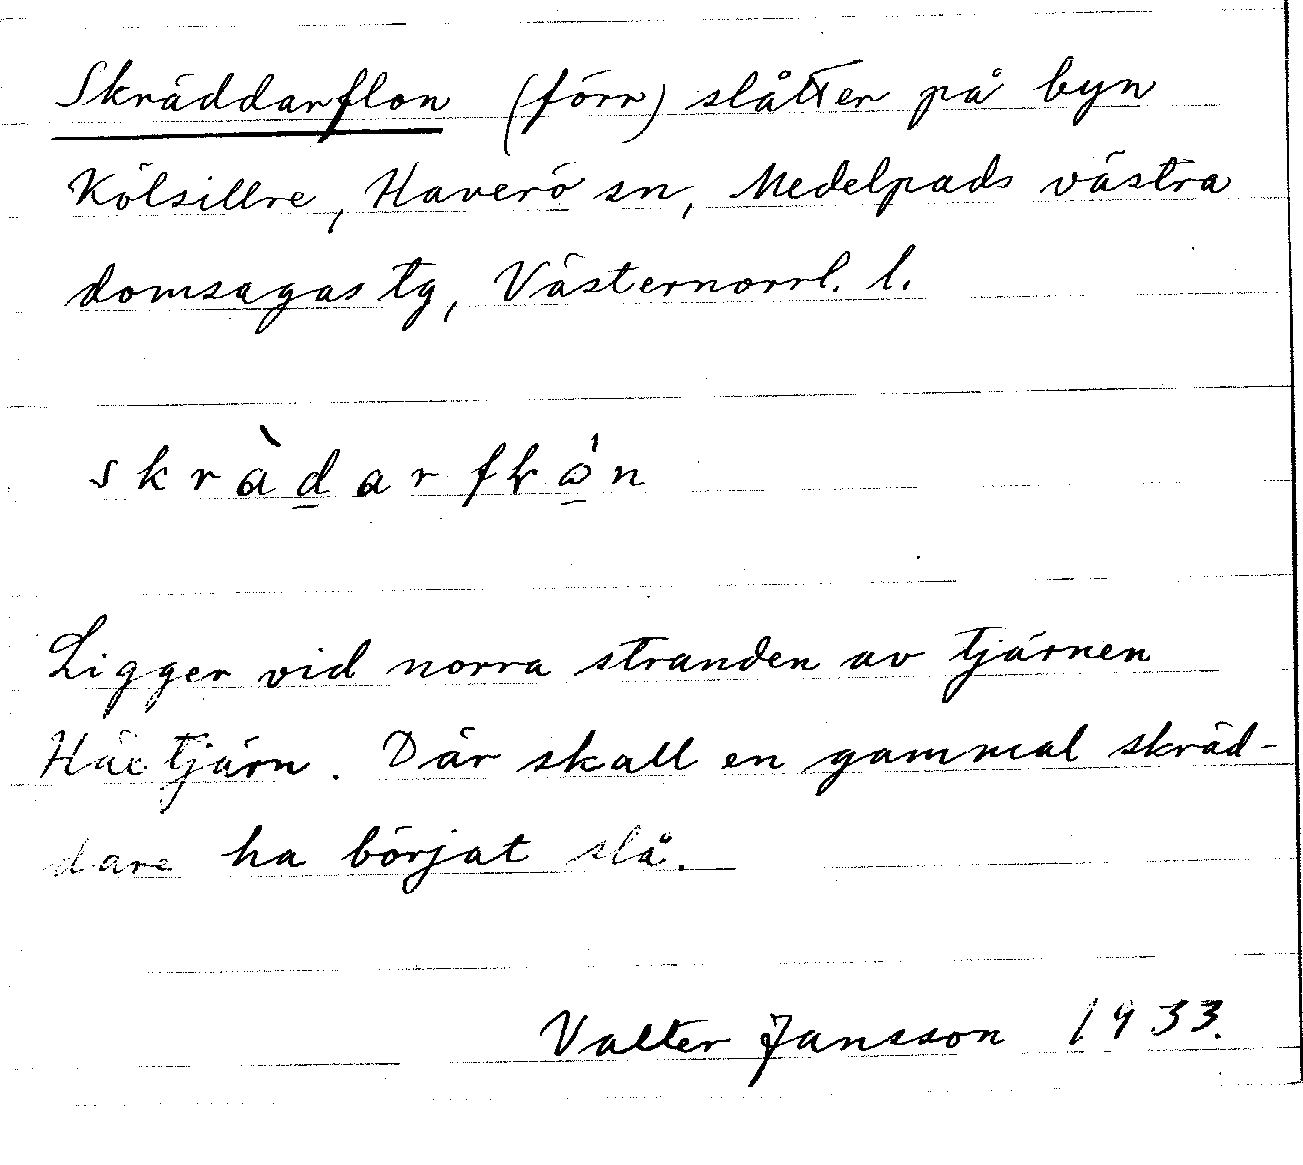 Skräddarflon (förr) slåtter på byn
Kölsillre, Haverö sn, Medelpads västra
domsagas tg, Västernorrl. l.
skràdarflån
Ligger vid norra stranden av tjärnen
tjärn. Där skall en gammal skräd-
dare ha börjat slå.
Valter Jansson 1933.